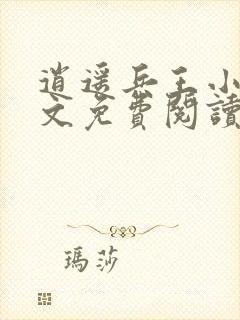 逍遥兵王小
文免費閱讀
瑪莎